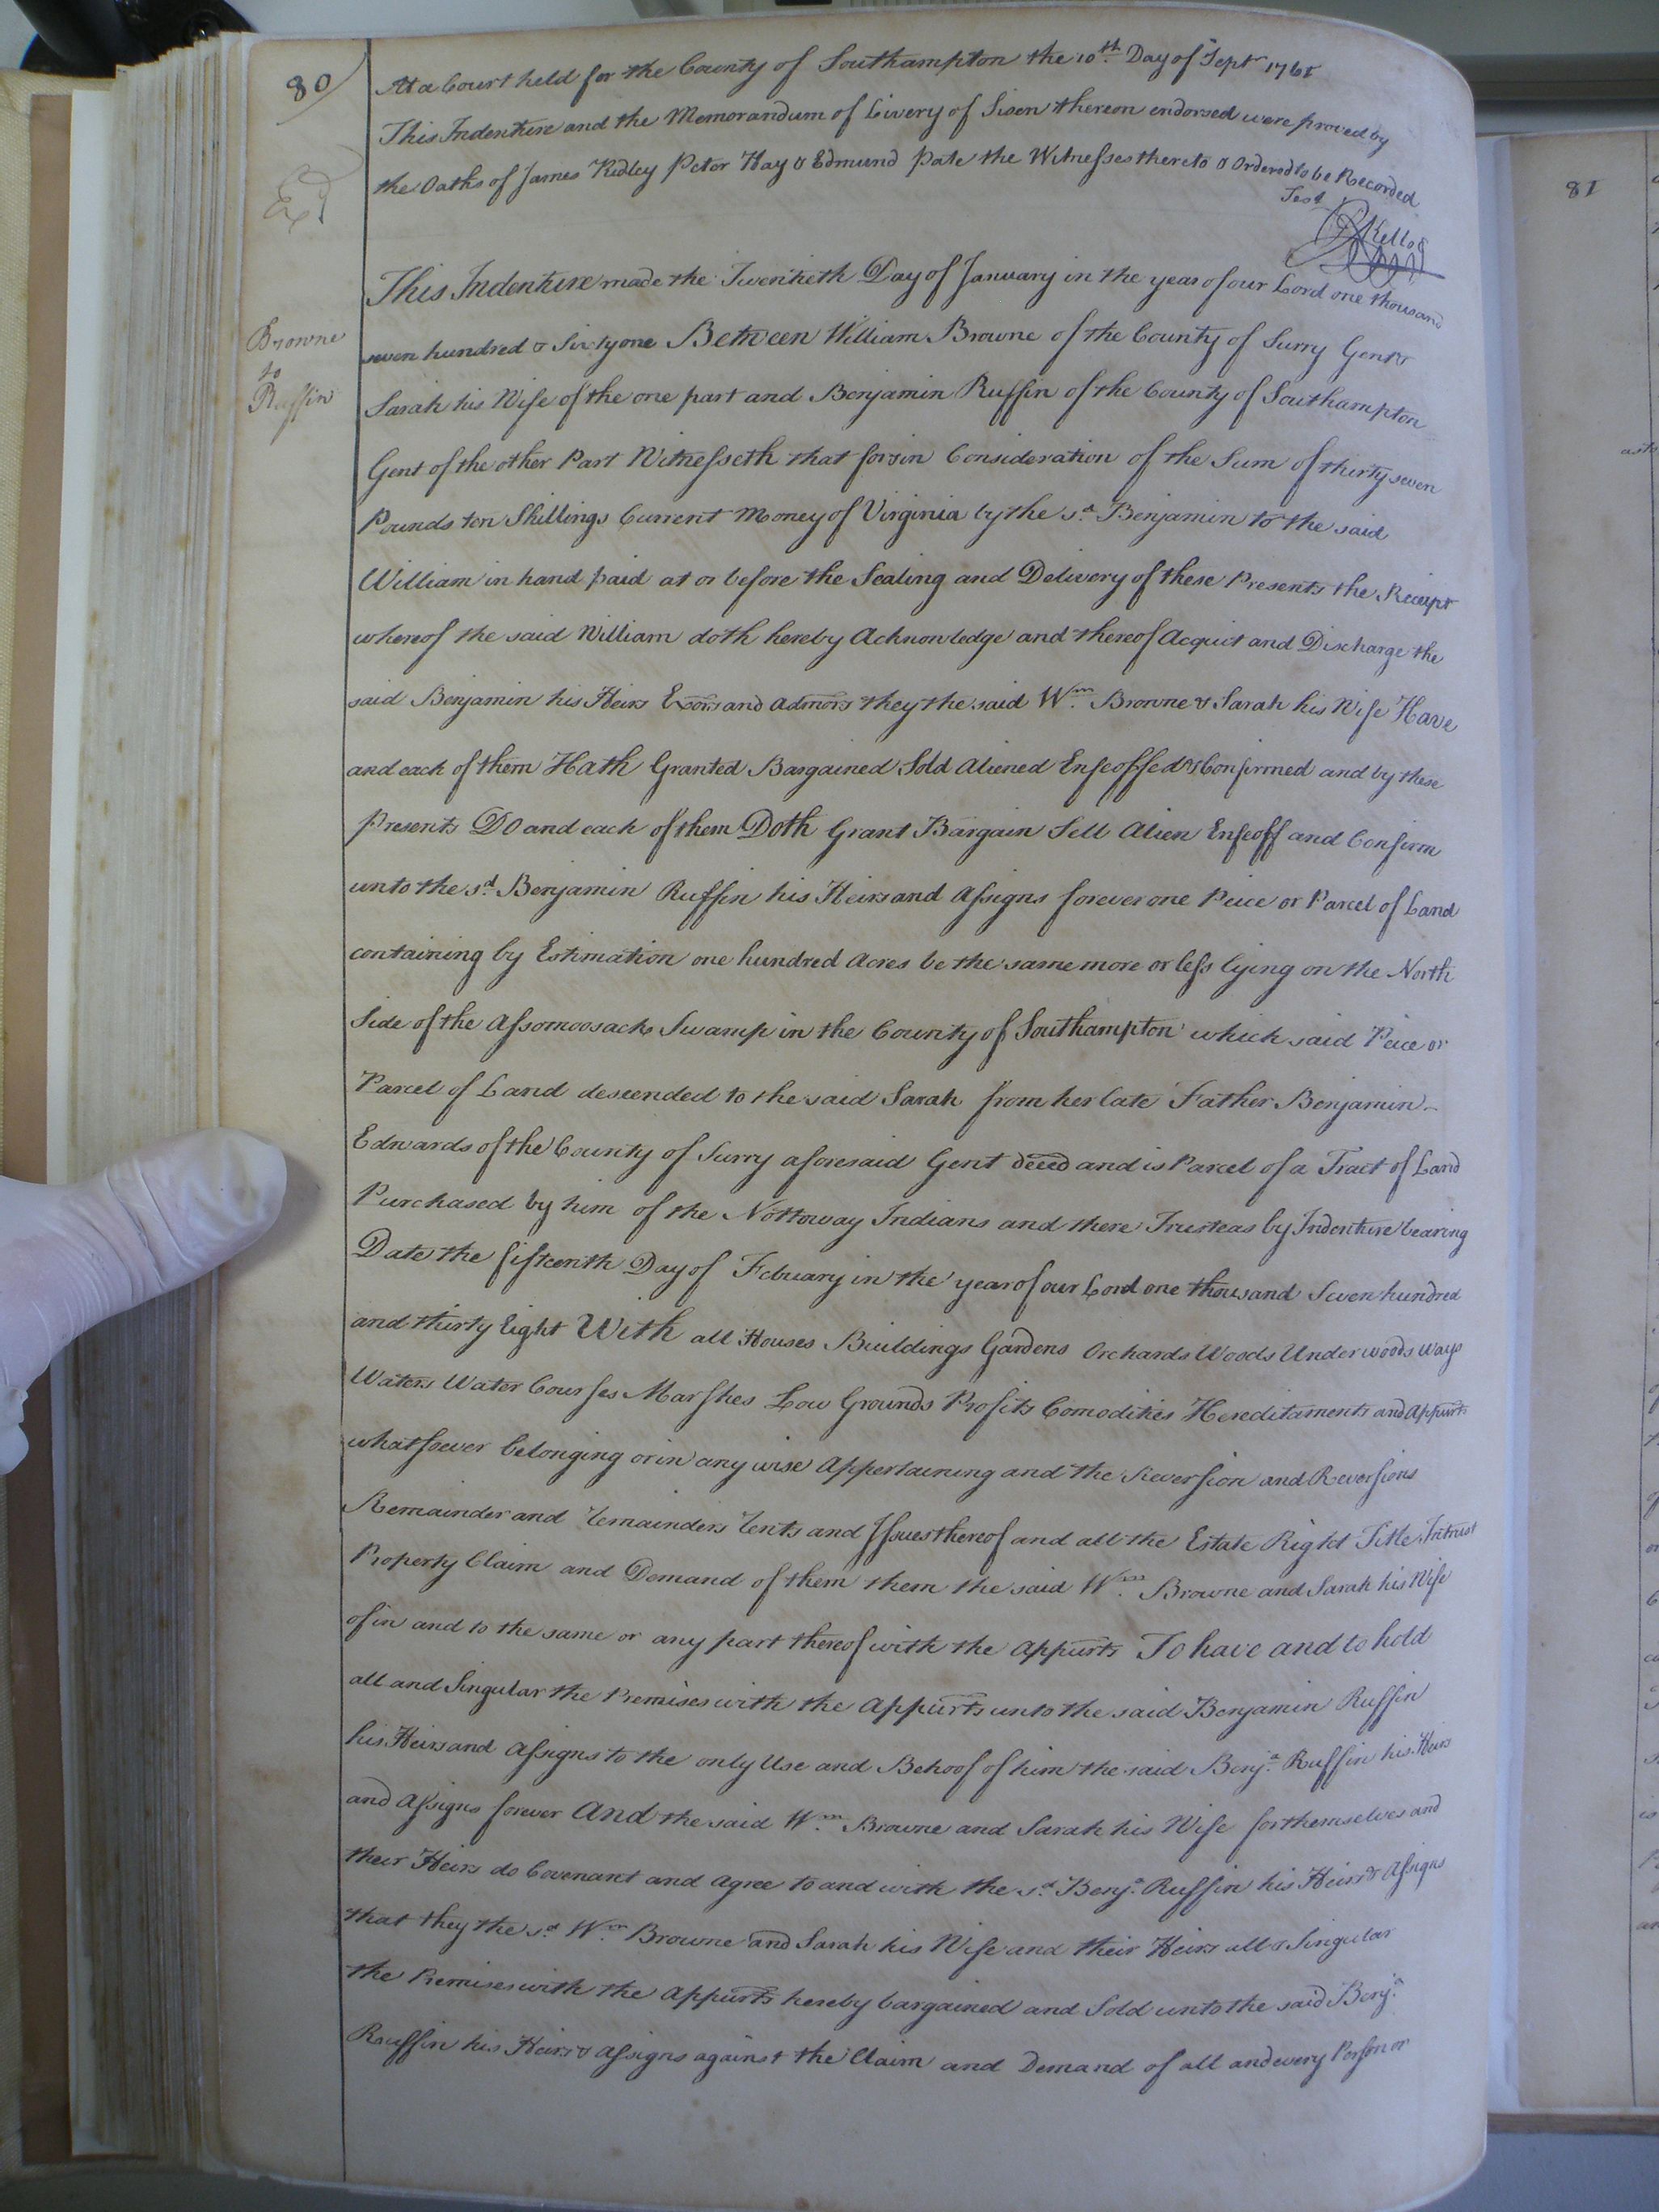 80
At a Court held for the County of Southampton the 10th. Day of Sept 1761
This Indenture and the Memorandum of Livery of Sisen thereon endorsed were proved by
the Oaths of James Ridley Peter Hay & Edmund Pate the Witnesses thereto & Ordered to be Recorded
Test
Exd
R Kello
This Indenture made the Twentieth Day of January in the year of our Lord one thousand
Browne
to
Ruffin
seven hundred & Sixty one Between William Browne of the County of Surry Gent &
Sarah his Wife of the one part and Benjamin Ruffin of the County of Southampton
Gent of the other Part Witnesseth that for & in Consideration of the Sum of thirty seven
Pounds ten Shillings Current Money of Virginia by the sd. Benjamin to the said
William in hand paid at or before the Sealing and Delivery of these Presents the Receipt
whereof the said William doth hereby Acknowledge and thereof Acquit and Discharge the
said Benjamin his Heirs Exors and Admors they the said Wm. Browne & Sarah his Wife Have
and each of them Hath Granted Bargained Sold Aliened Enfeoffed & Confirmed and by these
presents Do and each of them Doth Grant Bargain Sell Alien Enfeoff and Confirm
unto the sd. Benjamin Ruffin his Heirs and Assigns forever one Peice or Parcel of Land
containing by Estimation one hundred Acres be the same more or less lying on the North
Side of the Assomoosack Swamp in the County of Southampton which said Peice or
Parcel of Land descended to the said Sarah from her late Father Benjamin
Edwards of the County of Surry aforesaid Gent deced and is Parcel of a Tract of Land
Purchased by him of the Nottoway Indians and there Trusteas by Indenture bearing
Date the fifteenth Day of Febuary in the year of our Lord one thousand Seven hundred
and thirty Eight With all Houses Buildings Gardens Orchards Woods Underwoods Ways
Waters Water Courses Marshes Low Grounds Profits Comodities Hereditaments and Appurts
whatsoever belonging or in any wise Appertaining and the Reversion and Reversions
Remainder and remainders rents and Issues thereof and all the Estate Right Title Intrust
Property Claim and Demand of them them the said Wm. Browne and Sarah his Wife
of in and to the same or any part thereof with the Appurts To have and to hold
all and Singular the Premises with the Appurts unto the said Benjamin Ruffin
his Heirs and Assigns to the only Use and Behoof of him the said Benja. Ruffin his Heirs
and Assigns forever And the said Wm. Browne and Sarah his Wife for themselves and
their Heirs do Covenant and Agree to and with the sd. Benja. Ruffin his Heirs & Assigns
that they the sd. Wm. Browne and Sarah his Wife and their Heirs all & Singular
the Premises with the Appurts hereby bargained and Sold unto the said Benja.
Ruffin his Heirs & Assigns against the Claim and Demand of all and every Person or
81